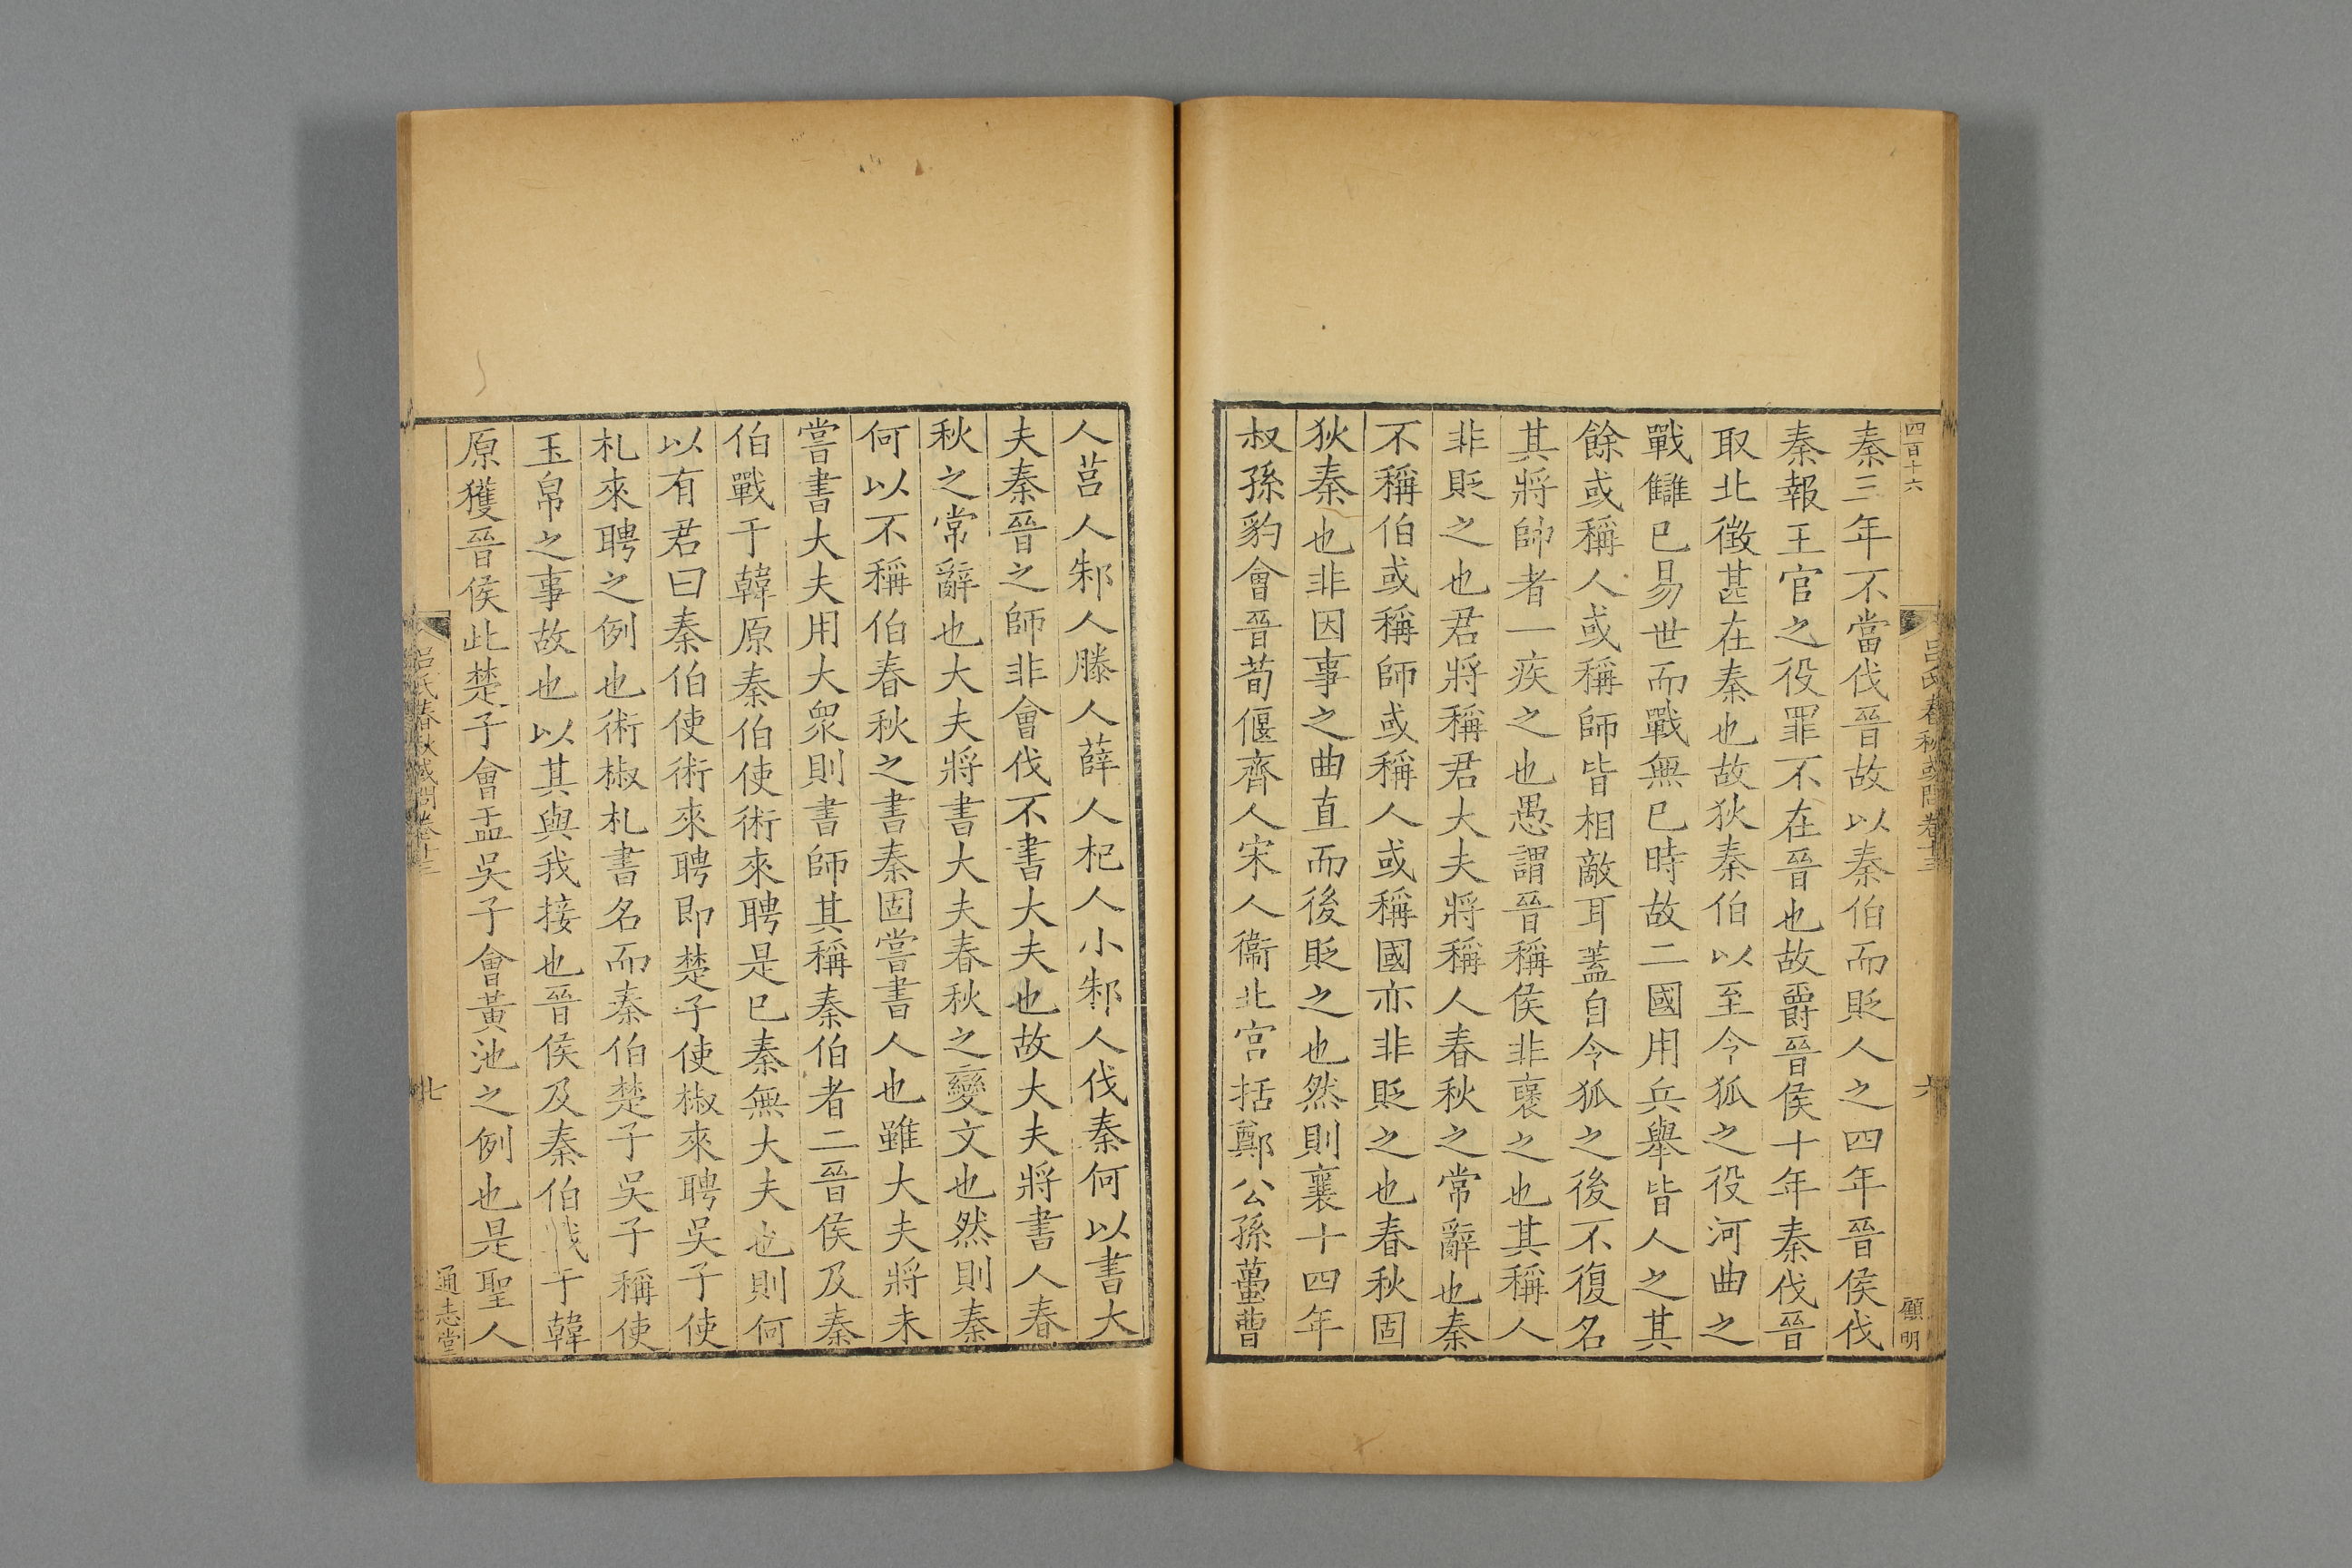 四百十六
呂氏春秋或問卷十三
六
顧明
秦三年不當伐晉故以秦伯而貶人之四年晉侯伐
秦報王官之役罪不在晉也故爵晉侯十年秦伐晉
取北徵甚在秦也故狄秦伯以至令狐之役河曲之
戰讎已易世而戰無已時故二國用兵舉皆人之其
餘或稱人或稱師皆相敵耳蓋自令狐之後不復名
其將帥者一疾之也愚謂晉稱侯非襃之也其稱人
非貶之也君將稱君大夫將稱人春秋之常辭也秦
不稱伯或稱師或稱人或稱國亦非貶之也春秋固
狄秦也非因事之曲直而後貶之也然則襄十四年
叔孫豹會晉荀偃齊人宋人衞北宮括鄭公孫蠆曹
人莒人邾人滕人薛人杞人小邾人伐秦何以書大
夫秦晉之師非會伐不書大夫也故大夫將書人春
秋之常辭也大夫將書大夫春秋之變文也然則秦
何以不稱伯春秋之書秦固嘗書人也雖大夫將未
嘗書大夫用大衆則書師其稱秦伯者二晉侯及秦
伯戰于韓原秦伯使術來聘是已秦無大夫也則何
以有君曰秦伯使術來聘即楚子使椒來聘吳子使
札來聘之例也術椒札書名而秦伯楚子吳子稱使
玉帛之事故也以其與我接也晉侯及秦伯戰于韓
原獲晉侯此楚子會盂吳子會黃池之例也是聖人
呂氏春秋或問卷十三
七
通志堂